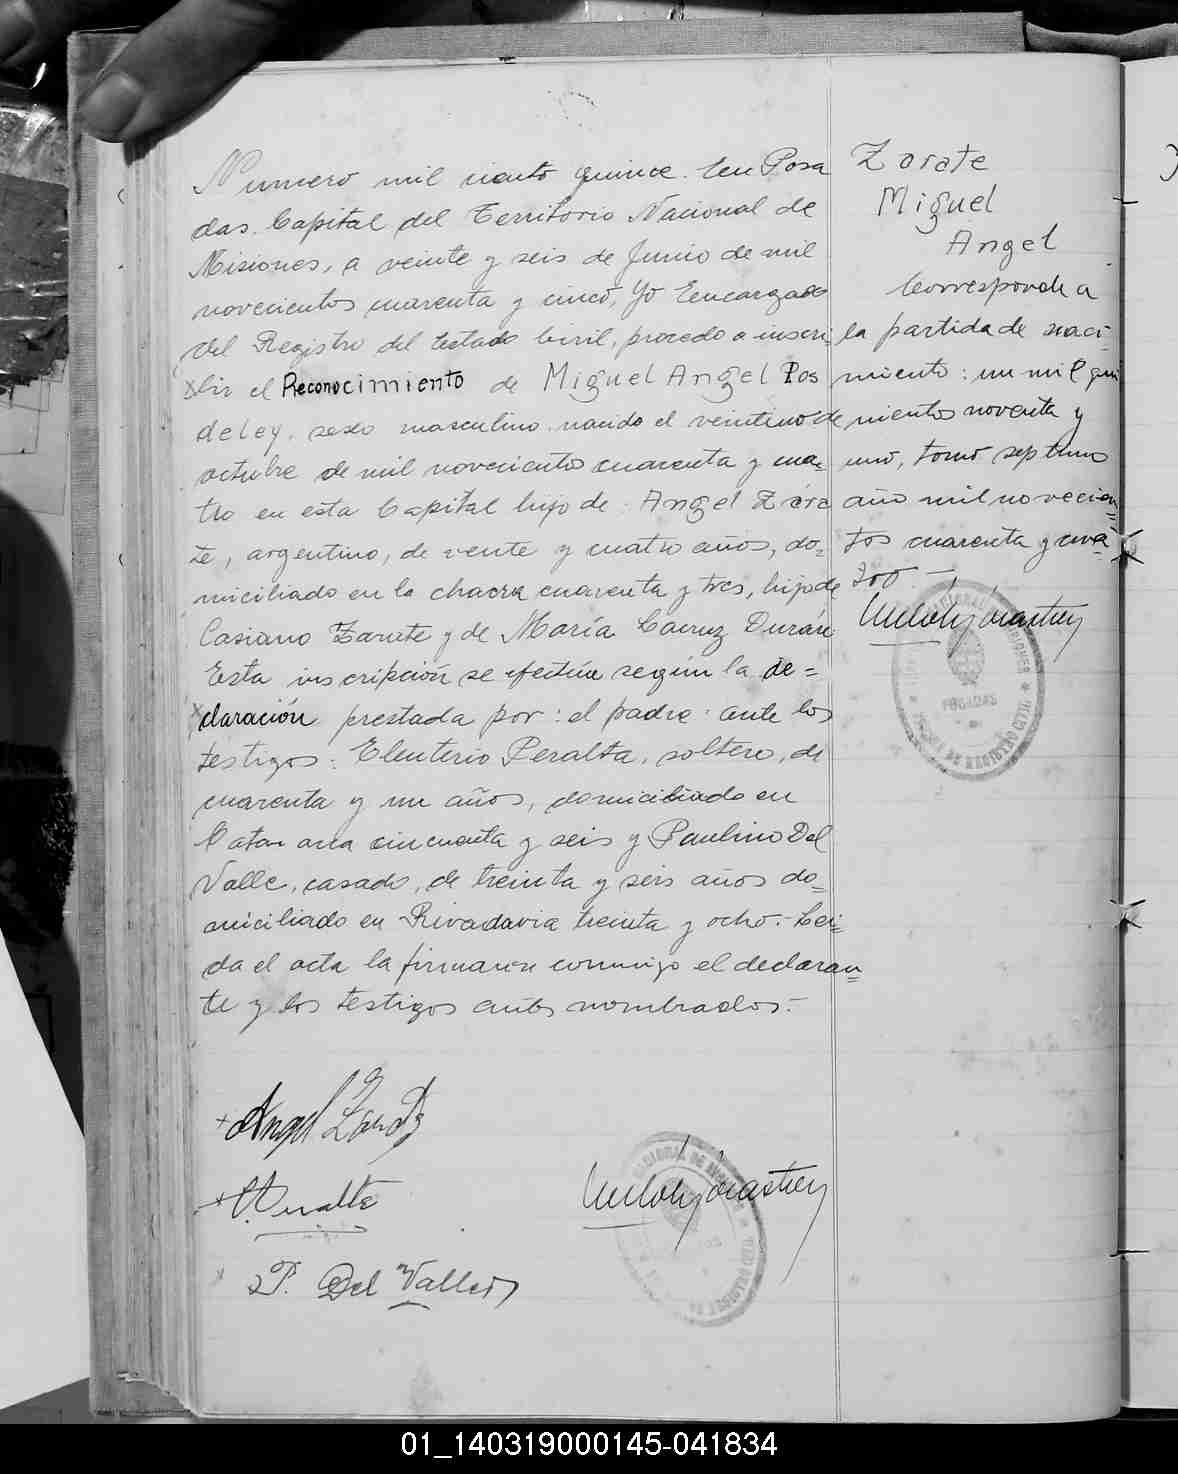 Numero mil ciento quince. En Posa
das. Capital del Territorio Nacional de
Misiones, a veinte y seis de Junio de mil
novecientos cuarenta y cinco, Yo Encargado
del Registro del Estado Civil, procedo a inscri-
bir el Reconocimiento de Miguel Angel Pos
deley. sexo masculino. nacido el veintiuno de
octubre de mil novecientos cuarenta y cua=
tro en esta Capital hijo de: Angel Zára
te, argentino, de vente y cuatro años, do=
miciliado en la chacra cuarenta y tres, hijo de
Casiano Zarate y de María Durán
Esta inscripción se efectúa según la de=
claración prestada por: el padre. ante los
testigos: Eleuterio Peralta, soltero, de
cuarenta y un años, domiciliado en
Catamarca cincuenta y seis y Paulino Del
Valle, casado, de treinta y seis años do=
miciliado en Rivadavia treinta y ocho.- Leí=
da el acta la firmaron conmigo el declaran=
te y los testigos antes nombrados.-
Zarate
Miguel
Angel
Corresponde a
la partida de naci-
miento: un mil qui
nientos noventa y
uno, tomo septimo
año mil novecien=
tos cuarenta y cua=
tro.-
POSADAS
REGISTRO CIVIL
Angel Zarate
Peralta
P. Del Valle
01_140319000145-041834